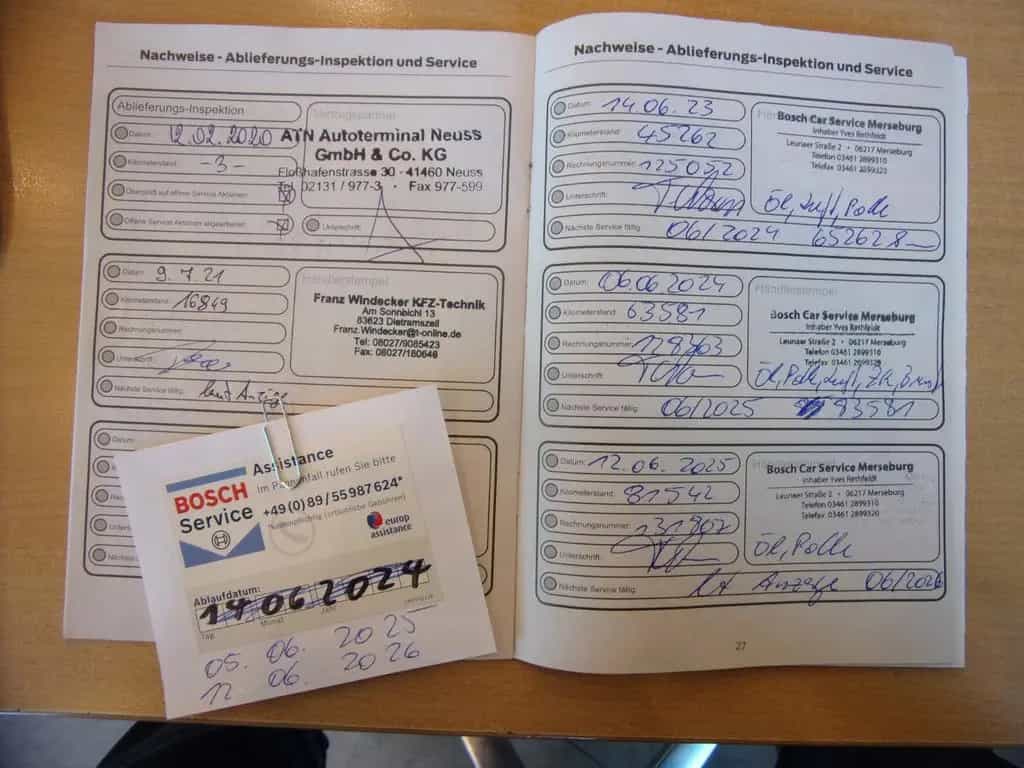 Nachweise - Ablieferungs-Inspektion und Service
Ablieferungs-Inspektion
Datum: 12.02.2020
Kilometerstand: -3-
Offene Service Aktionen abgearbeitet:
ATN Autoterminal Neuss
GmbH & Co. KG
Floßhafenstrasse 30 - 41460 Neuss
Tel. 02131 / 977-3 · Fax 977-599
Unterschrift:
Datum: 9.7.21
Kilometerstand: 16849
Rechnungsnummer:
Unterschrift:
Nächste Service fällig: laut Anzeige
Händlerstempel
Franz Windecker KFZ-Technik
Am Sonnbichl 13
83623 Dietramszell
Franz.Windecker@t-online.de
Tel: 08027/9085423
Fax: 08027/180646
Datum:
BOSCH
Service
Assistance
Im Pannenfall rufen Sie bitte
+49(0)89/55987624*
europ
assistance
Ablaufdatum:
14 06 2024
Tag Monat Jahr
05. 06. 2025
12 06. 2026
Nachweise - Ablieferungs-Inspektion und Service
Datum: 14.06.23
Kilometerstand: 45262
Rechnungsnummer: 125052
Unterschrift:
Nächste Service fällig: 06/2024 65262
Bosch Car Service Merseburg
Inhaber Yves Rethfeldt
Leunaer Straße 2 · 06217 Merseburg
Telefon 03461 2899310
Telefax 03461 2899320
Öl, Luft, Polle
Datum: 06.06.2024
Kilometerstand: 63581
Rechnungsnummer:
Unterschrift:
Nächste Service fällig: 06/2025 83581
Händlerstempel
Bosch Car Service Merseburg
Inhaber Yves Rethfeldt
Leunaer Straße 2 · 06217 Merseburg
Telefon 03461 2899310
Telefax 03461 2899320
Öl, Polle, Luft, ZK,
Datum: 12.06.2025
Kilometerstand: 81542
Rechnungsnummer:
Unterschrift:
Nächste Service fällig: lt Anzeige 06/2026
Bosch Car Service Merseburg
Inhaber Yves Rethfeldt
Leunaer Straße 2 · 06217 Merseburg
Telefon 03461 2899310
Telefax 03461 2899320
Öl, Polle
27